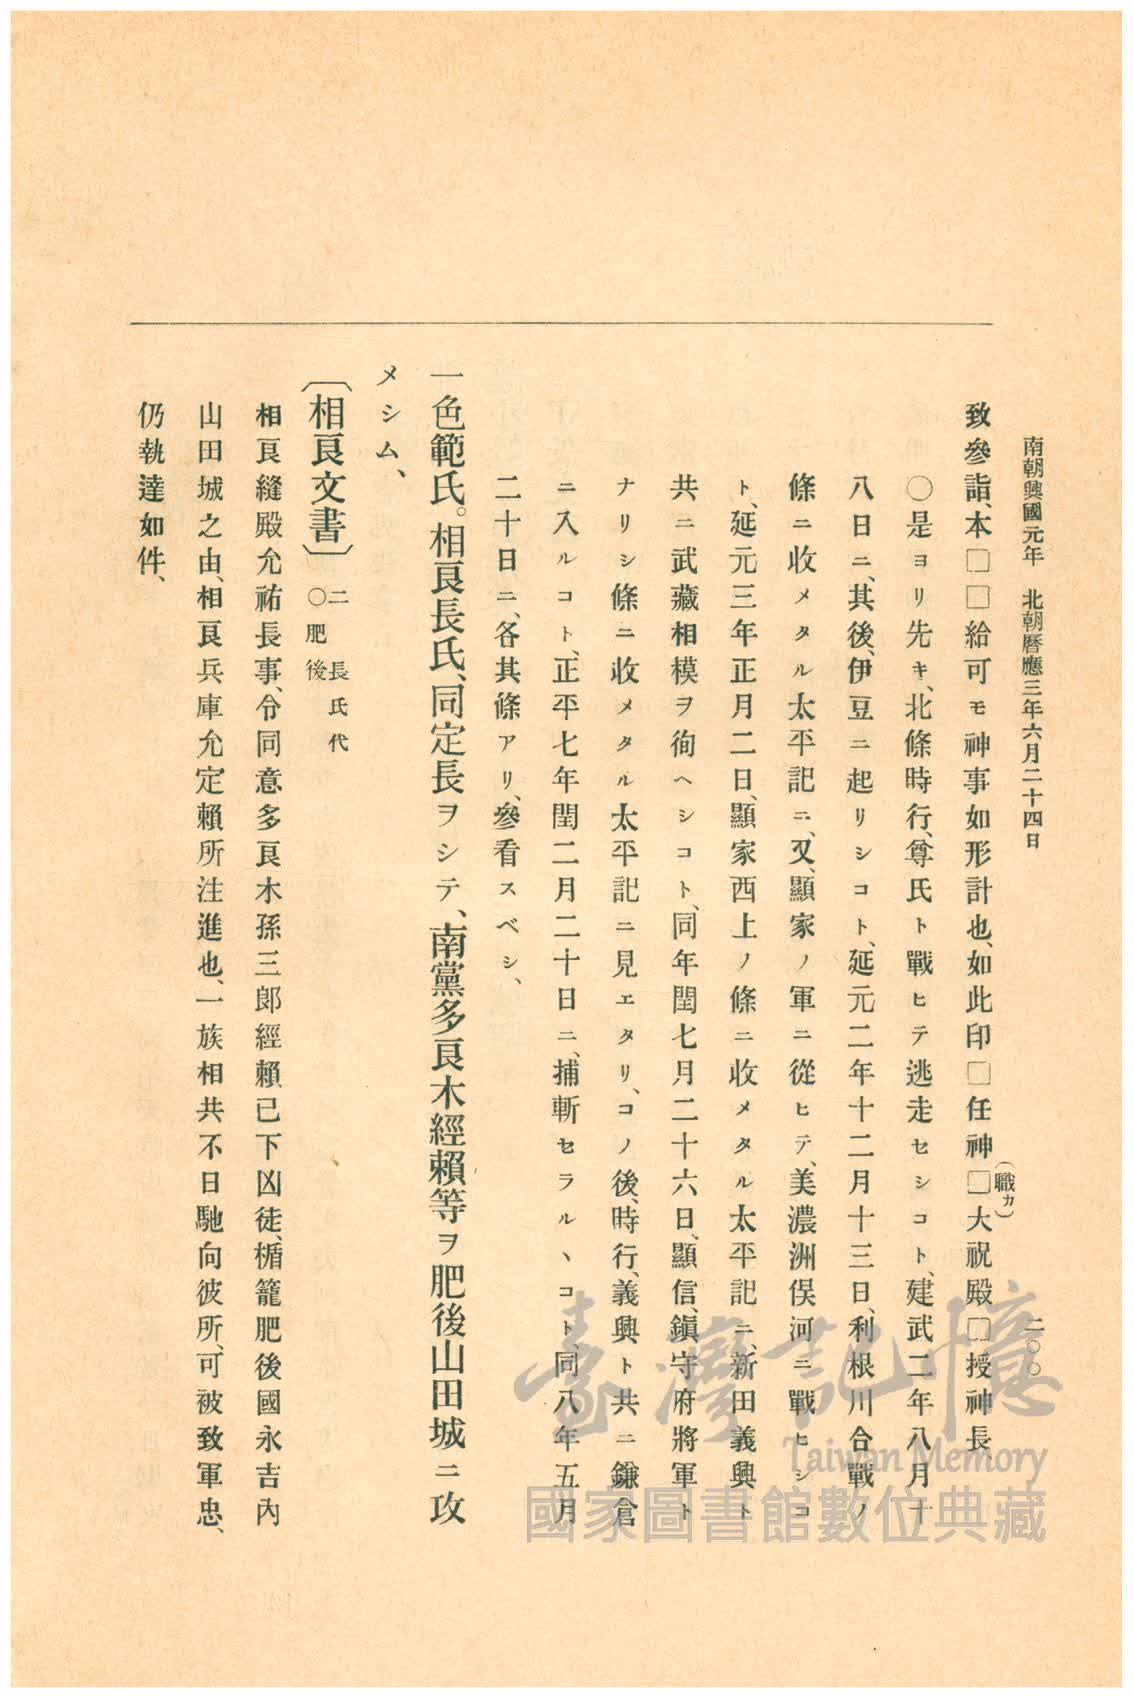 南朝興國元年　北朝曆應三年六月二十四日　二〇〇
致參詣、本□□給可モ神事如形計也、如此印□任神□(職カ)大祝殿□授神長、
〇是ヨリ先キ、北條時行、尊氏ト戰ヒテ逃走セシコト、建武二年八月十
八日ニ、其後、伊豆ニ起リシコト、延元二年十二月十三日、利根川合戰ノ
條ニ收メタル太平記ニ、又、顯家ノ軍ニ從ヒテ、美濃洲俣河ニ戰ヒシコ
ト、延元三年正月二日、顯家西上ノ條ニ收メタル太平記ニ、新田義興ト
共ニ武藏相模ヲ徇ヘシコト、同年閏七月二十六日、顯信、鎭守府將軍ト
ナリシ條ニ收メタル太平記ニ見エタリ、コノ後、時行、義興ト共ニ鎌倉
ニ入ルコト、正平七年閏二月二十日ニ、捕斬セラルヽコト、同八年五月
二十日ニ、各其條アリ、參看スベシ、
一色範氏。相良長氏、同定長ヲシテ、南黨多良木經賴等ヲ肥後山田城ニ攻
メシム、
〔相良文書〕二　長氏代
〇肥後
相良縫殿允祐長事、令同意多良木孫三郎經賴已下凶徒、楯籠肥後國永吉內
山田城之由、相良兵庫允定賴所注進也、一族相共不日馳向彼所、可被致軍忠、
仍執達如件、
臺灣記憶
Taiwan Memory
國家圖書館數位典藏